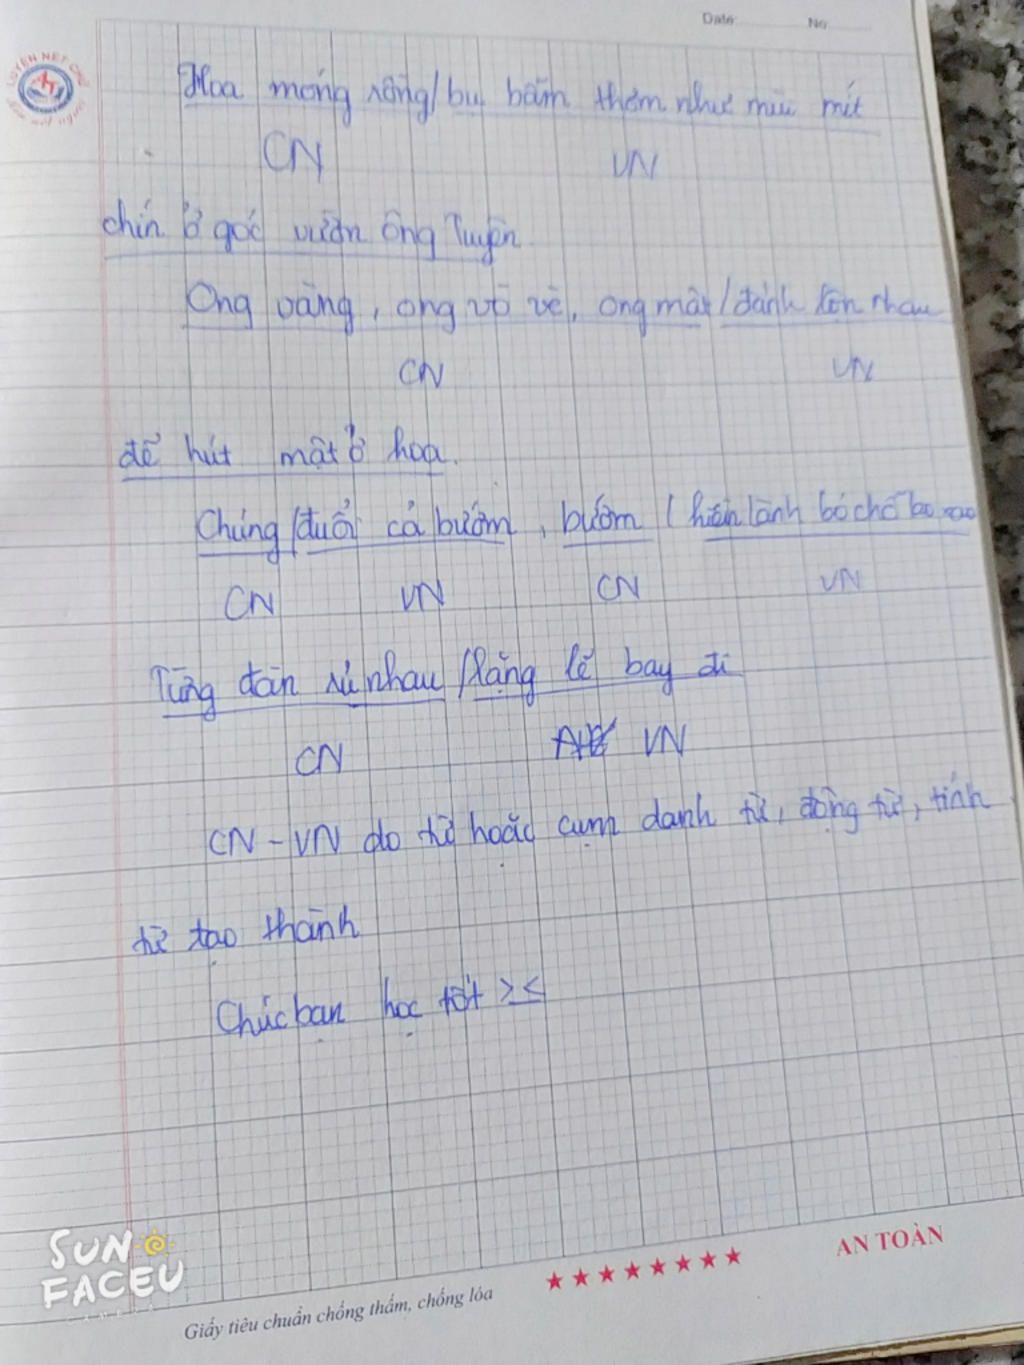 Date: No
LUYỆN NÉT CHỮ
Hoa móng rồng / bụ bẫm thơm như mùi mít
CN VN
chín ở góc vườn ông Tuyên.
Ong vàng, ong vò vẽ, ong mật / đánh lộn nhau
CN VN
để hút mật ở hoa.
Chúng / đuổi cả bướm, bướm / hiền lành bỏ chỗ lao xao
CN VN CN VN
Từng đàn rủ nhau / lặng lẽ bay đi
CN VN
CN - VN do từ hoặc cụm danh từ, động từ, tính
từ tạo thành
Chúc bạn học tốt ><
SUN
FACEU
Giấy tiêu chuẩn chống thấm, chống lóa
★★★★★★★★
AN TOÀN